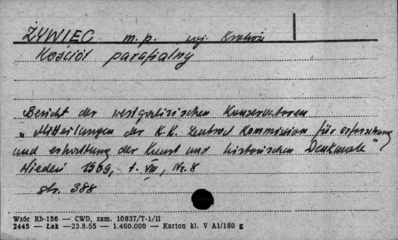 ŻYWIEC m. p. woj. Kraków
Kościół parafialny
Bericht der westgalizischen Konservatoren
"Mitteilungen der K.K. Zentral Kommission für erforschung
und erhaltung der Kunst und historischen Denkmale"
Wiedeń 1909, t. VIII, Nr. 8
str. 388
Wzór Kb-156 — CWD, zam. 10837/T-1/II
2445 — Łak — 23.8.55 — 1.460.000 — Karton kl. V A1/180 g